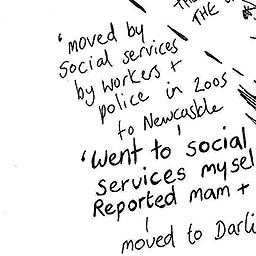 THE
'moved by
social services
by workers +
police in 2005
to Newcastle
'went to social
services mysel
Reported mam +
moved to Darli